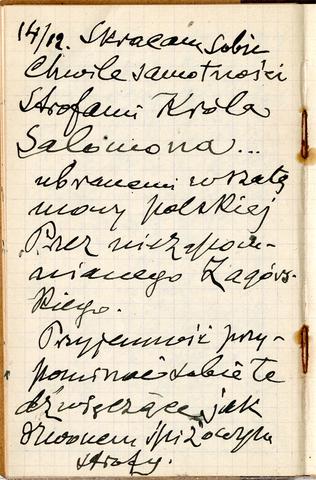 14/12. Skracam sobie
Chwile samotności
strofami Króla
Salomona...
ubranemi w szatę
mowy polskiej
Przez niezapom-
nianego Zagórs-
kiego.
Przyjemność przy-
pominać sobie te
dźwięczące jak
dzwonem spiżowym
strofy.